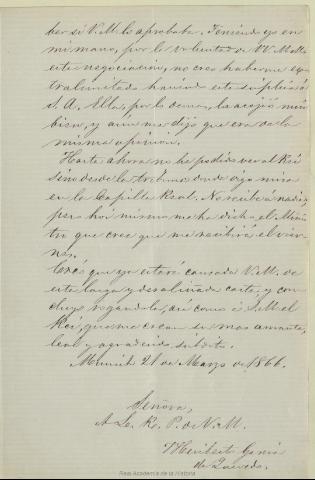 ber si V.M. lo aprobaba. Teniendo yo en
mi mano, por la voluntad de VV. MM.
esta negociacion, no creo haberme es-
tralimitado haciendo esta súplica á
S. A. Ella, por lo demas, la acojió mui
bien, y aún me dijo que era de la
misma opinion.
Hasta ahora no he podido ver al Rei
sino desde la tribuna donde oyó misa
en la Capilla Real. No recibe á nadie,
pero hoi mismo me ha dicho el Minis-
tro que cree que me recibirá el vier-
nes.
Creo que ya estará cansada V.M. de
esta larga y desaliñada carta, y con-
cluyo rogandola, asi como á S.M. el
Rei, que me crean su mas amante,
leal y agradecido subdito.
Munich 21 de Marzo de 1866.
Señora,
A L. R. P. de V. M.
Heriberto Garcia
de Quevedo.
Real Academia de la Historia